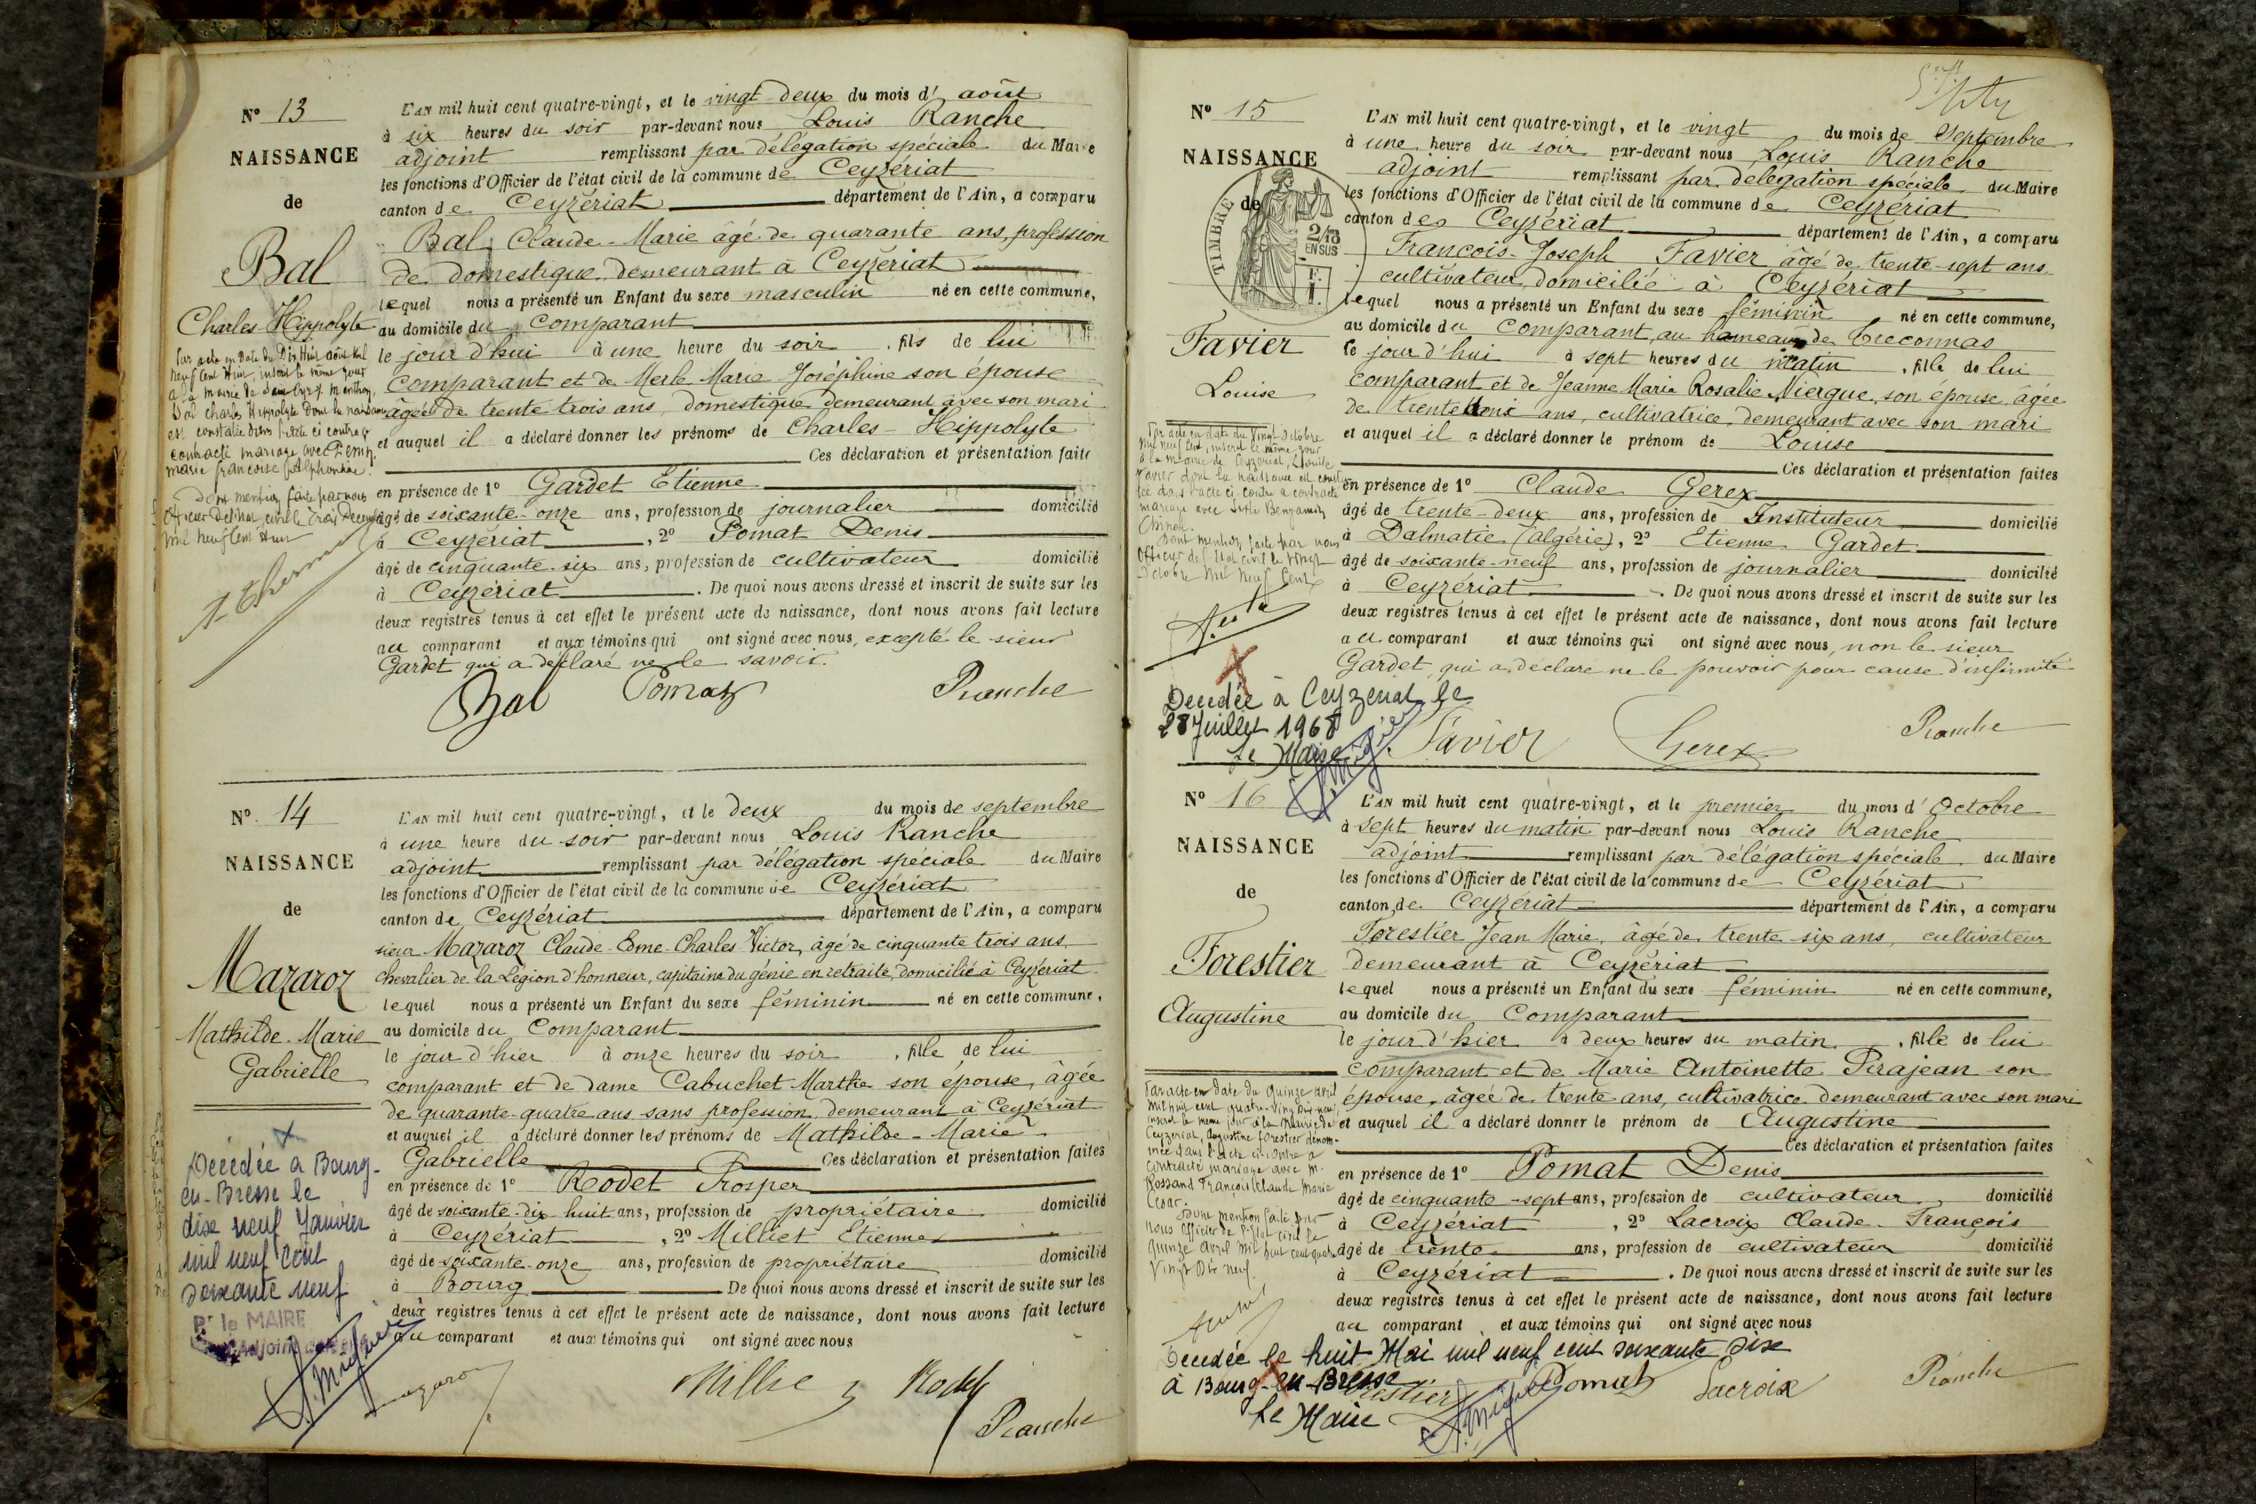 N° 13
NAISSANCE
de
Bal
Charles-Hippolyte
Par acte en date du Dix Huit août mil
neuf Cent Huit, inscrit le même jour
à la mairie de
Bal Charles Hippolyte dont la naissance
est constatée dans l'acte ci contre a
contracté mariage avec
marie françoise Alphonsine.
Dont mention faite par nous
Officier de l'état civil le trois Décembre
mil neuf Cent Huit
L'AN mil huit cent quatre-vingt, et le vingt-deux du mois d' août
à six heures du soir par-devant nous Louis Ranche
adjoint remplissant par délégation spéciale du Maire
les fonctions d'Officier de l'état civil de la commune de Ceyzériat
canton de Ceyzériat département de l'Ain, a comparu
Bal Claude-Marie âgé de quarante ans, profession
de domestique demeurant à Ceyzériat
lequel nous a présenté un Enfant du sexe masculin né en cette commune,
au domicile du comparant
le jour d'hui à une heure du soir, fils de lui
comparant et de Merle Marie Joséphine son épouse
âgée de trente trois ans, domestique demeurant avec son mari
et auquel il a déclaré donner les prénoms de Charles-Hippolyte
Ces déclaration et présentation faites
en présence de 1° Gardet Etienne
âgé de soixante-onze ans, profession de journalier domicilié
à Ceyzériat, 2° Pomat Denis
âgé de cinquante-six ans, profession de cultivateur domicilié
à Ceyzériat. De quoi nous avons dressé et inscrit de suite sur les
deux registres tenus à cet effet le présent acte de naissance, dont nous avons fait lecture
au comparant et aux témoins qui ont signé avec nous, excepté le sieur
Gardet qui a déclaré ne le savoir.
Bal Pomat Ranche
N° 14
NAISSANCE
de
Mazaroz
Mathilde-Marie
Gabrielle
Décédée à Bourg-
en-Bresse le
dix neuf Janvier
mil neuf cent
soixante neuf
Pr le MAIRE
L'AN mil huit cent quatre-vingt, et le deux du mois de septembre
à une heure du soir par-devant nous Louis Ranche
adjoint remplissant par délégation spéciale du Maire
les fonctions d'Officier de l'état civil de la commune de Ceyzériat
canton de Ceyzériat département de l'Ain, a comparu
sieur Mazaroz Claude-Edme-Charles Victor, âgé de cinquante trois ans,
chevalier de la Légion d'honneur, capitaine du génie en retraite, domicilié à Ceyzériat
lequel nous a présenté un Enfant du sexe féminin né en cette commune,
au domicile du comparant
le jour d'hier à onze heures du soir, fille de lui
comparant et de dame Cabuchet Marthe son épouse, âgée
de quarante-quatre ans sans profession demeurant à Ceyzériat
et auquel il a déclaré donner les prénoms de Mathilde-Marie
Gabrielle Ces déclaration et présentation faites
en présence de 1° Rodet Prosper
âgé de soixante-dix huit ans, profession de propriétaire domicilié
à Ceyzériat, 2° Milliet Etienne
âgé de soixante-onze ans, profession de propriétaire domicilié
à Bourg De quoi nous avons dressé et inscrit de suite sur les
deux registres tenus à cet effet le présent acte de naissance, dont nous avons fait lecture
au comparant et aux témoins qui ont signé avec nous
Mazaroz Rodet
Ranche
N° 15
NAISSANCE
de
TIMBRE
2/10
EN SUS
Favier
Louise
Par acte en date du Vingt Octobre
mil neuf Cent, inscrit le même jour
à la mairie de Ceyzériat, Louise
Favier dont la naissance est consta
tée dans l'acte ci contre a contracté
mariage avec
Dont mention faite par nous
Officier de l'état civil le vingt
Octobre mil neuf Cent
Décédée à Ceyzeriat le
28 Juillet 1968
Le Maire
L'AN mil huit cent quatre-vingt, et le vingt du mois de Septembre
à une heure du soir par-devant nous Louis Ranche
adjoint remplissant par délégation spéciale du Maire
les fonctions d'Officier de l'état civil de la commune de Ceyzériat
canton de Ceyzériat département de l'Ain, a comparu
François-Joseph Favier âgé de trente-sept ans
cultivateur, domicilié à Ceyzériat
lequel nous a présenté un Enfant du sexe féminin né en cette commune,
au domicile du comparant, au hameau de Treconnas
le jour d'hui à sept heures du matin, fille de lui
comparant et de Jeanne Marie Rosalie Niergue, son épouse, âgée
de trente ans, cultivatrice, demeurant avec son mari
et auquel il a déclaré donner le prénom de Louise
Ces déclaration et présentation faites
en présence de 1° Claude Gerex
âgé de trente-deux ans, profession de Instituteur domicilié
à Dalmatie (algérie), 2° Etienne Gardet
âgé de soixante-neuf ans, profession de journalier domicilié
à Ceyzériat. De quoi nous avons dressé et inscrit de suite sur les
deux registres tenus à cet effet le présent acte de naissance, dont nous avons fait lecture
au comparant et aux témoins qui ont signé avec nous, non le sieur
Gardet qui a déclaré ne le pouvoir pour cause d'infirmité
Favier Gerex Ranche
N° 16
NAISSANCE
de
Forestier
Augustine
Par acte en date du quinze avril
mil huit cent quatre-vingt Dix-neuf,
inscrit le même jour à la Mairie de
Ceyzeriat, Augustine Forestier dénom-
mée dans l'acte ci-contre a
contracté mariage avec M.
Rossand François Claude Marie
Cesar.
Dont mention faite par
nous Officier de l'état civil le
quinze avril mil huit cent quatre
vingt Dix neuf
L'AN mil huit cent quatre-vingt, et le premier du mois d' Octobre
à sept heures du matin par-devant nous Louis Ranche
adjoint remplissant par délégation spéciale du Maire
les fonctions d'Officier de l'état civil de la commune de Ceyzériat
canton de Ceyzériat département de l'Ain, a comparu
Forestier Jean Marie, âgé de trente-six ans, cultivateur
demeurant à Ceyzériat
lequel nous a présenté un Enfant du sexe féminin né en cette commune,
au domicile du Comparant
le jour d'hier à deux heures du matin, fille de lui
comparant et de Marie Antoinette Pirajean son
épouse, âgée de trente ans, cultivatrice demeurant avec son mari
et auquel il a déclaré donner le prénom de Augustine
Ces déclaration et présentation faites
en présence de 1° Pomat Denis
âgé de cinquante-sept ans, profession de cultivateur domicilié
à Ceyzériat, 2° Lacroix Claude-François
âgé de trente ans, profession de cultivateur domicilié
à Ceyzériat. De quoi nous avons dressé et inscrit de suite sur les
deux registres tenus à cet effet le présent acte de naissance, dont nous avons fait lecture
au comparant et aux témoins qui ont signé avec nous
Décédée le huit Mai mil neuf cent soixante dix
à Bourg-en-Bresse
Le Maire
Forestier Pomat Lacroix Ranche